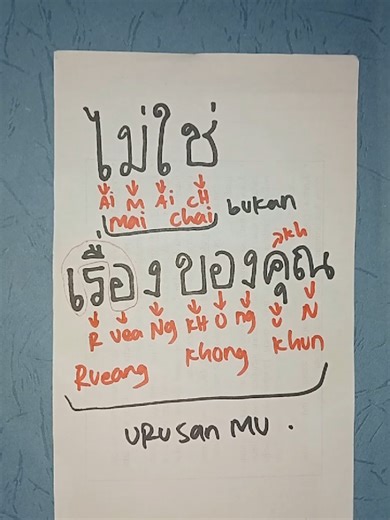 ไม่ใช่
Ai M Ai cH
mai chai bukan
เรื่องของคุณ
kh
R Uea Ng KH O ng U N
Rueang Khong Khun
URUSAN MU .